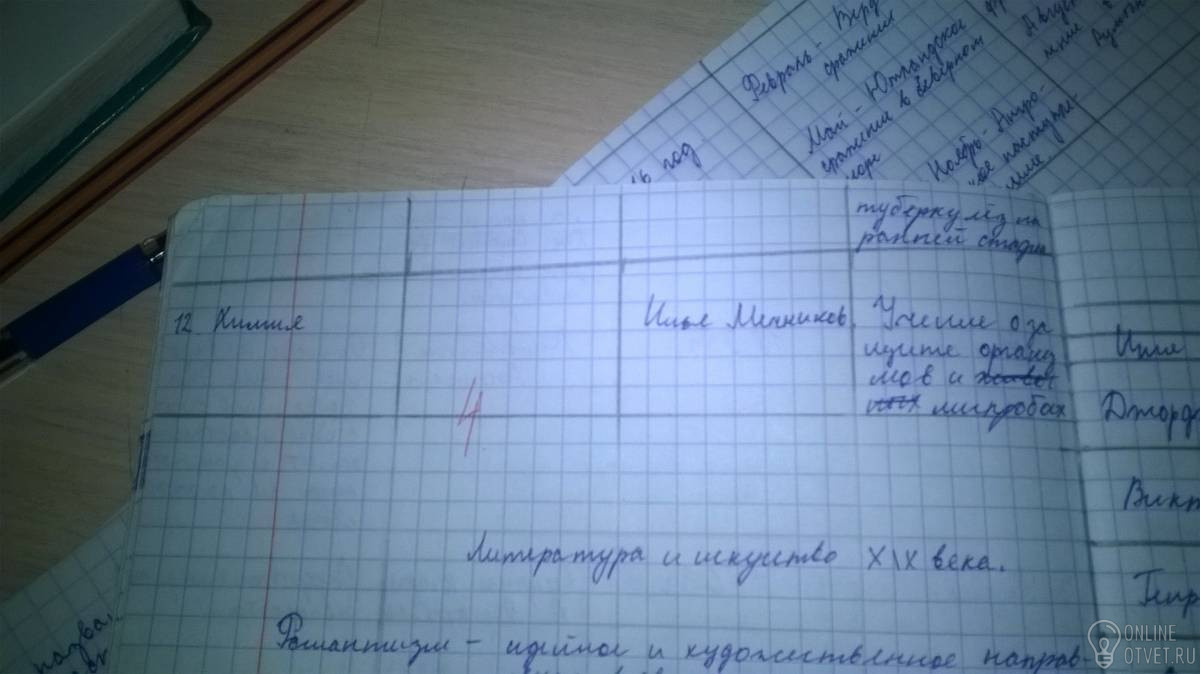 Февраль - Верд
сражение
Май - Ютландское
сражение в Северном
море
Ноябрь -
16 год
туберкулёз на
ранней стадии
12. Химия
Илья Мечников.
Учение о за
щите организ
мов и
микробах
4
Литература и искуство XIX века.
Романтизм - идейное и художественное направ-
Джорд
Викт
Генр
назва
ONLINE
OTVET.RU